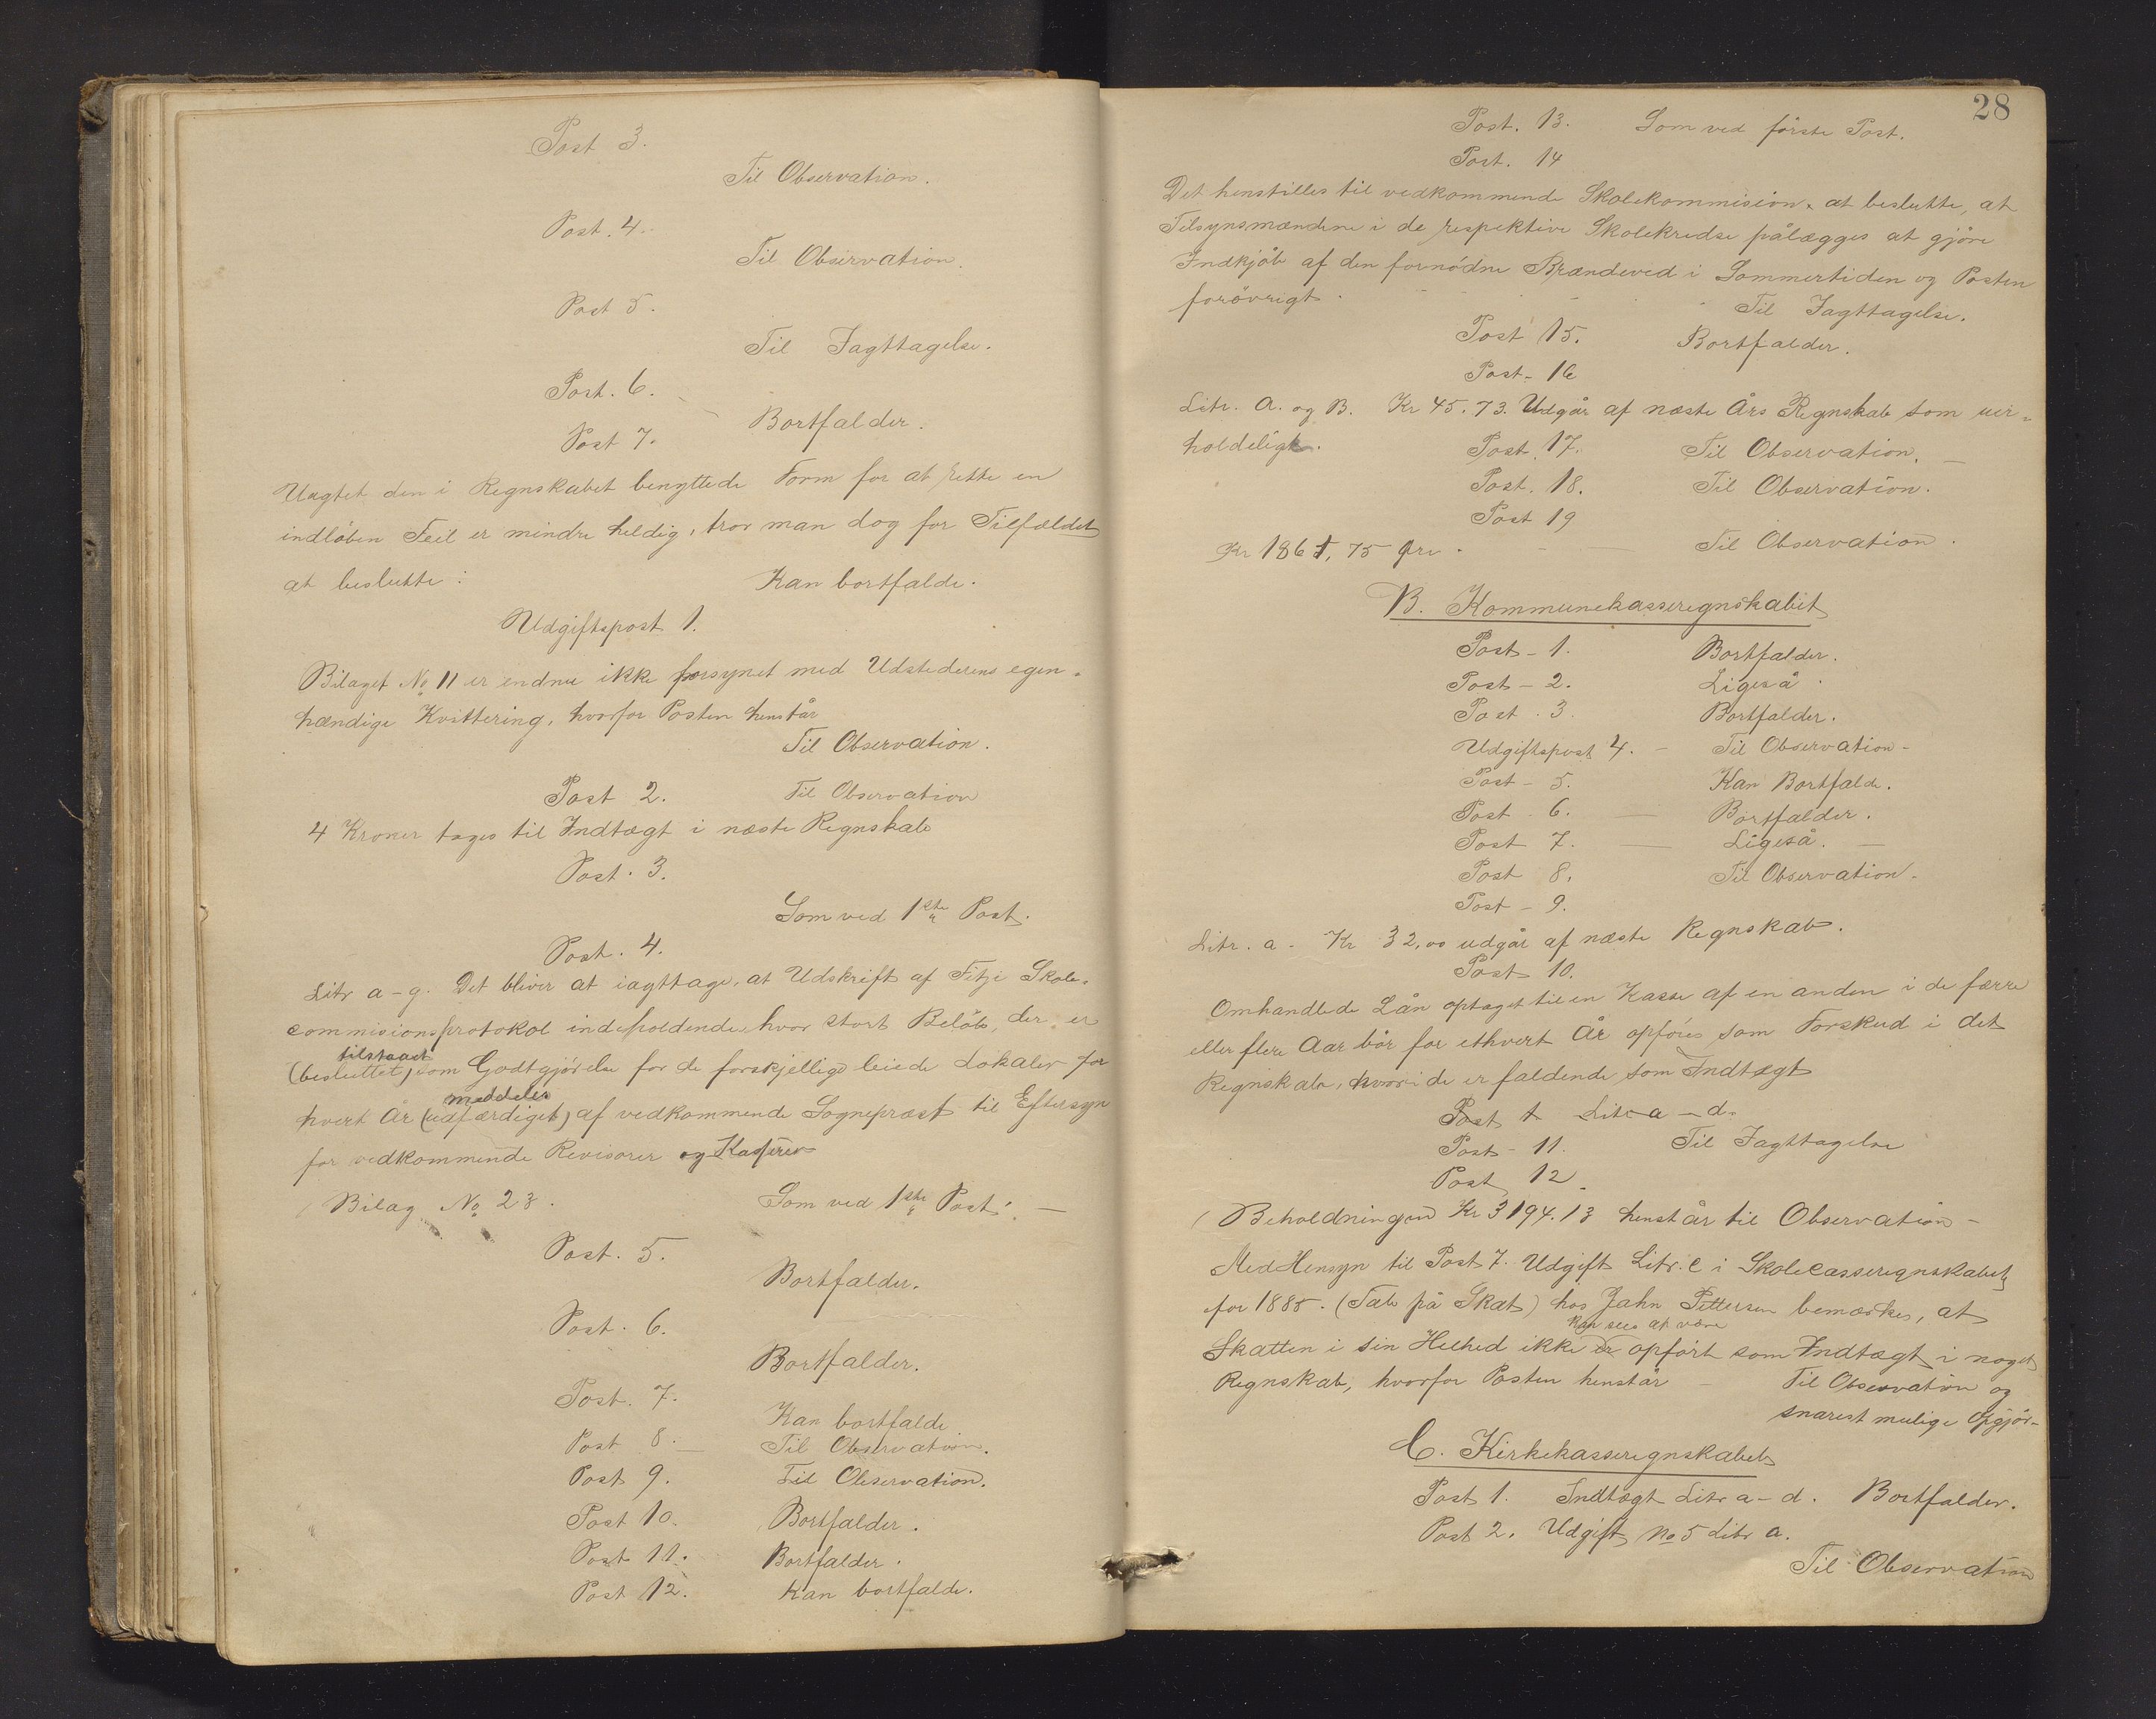 Post 3.
Til Observation.
Post. 4.
Til Observation.
Post 5.
Til Iagttagelse.
Post. 6.
Bortfalder.
Post 7.
Uagtet den i Regnskabet benyttede Form for at rette en
indløben Feil er mindre heldig, tror man dog for Tilfældet
at beslutte: Kan bortfalde.
Udgiftspost 1.
Bilaget No 11 er endnu ikke forsynet med Udstederens egen-
hændige Kvittering, hvorfor Posten henstår
Til Observation.
Post 2. Til Observation
4 Kroner tages til Indtægt i næste Regnskab
Post. 3.
Som ved 1ste Post.
Post. 4.
Litr a-g. Det bliver at iagttage, at Udskrift af Fitje Skole-
commisionsprotokol indeholdende, hvor stort Beløb, der er
tilstaaet
(besluttet) som Godtgjörelse for de forskjellige leiede Lokaler for
meddeles
hvert År (udfærdiget) af vedkommende Sognepræst til Eftersyn
for vedkommende Revisorer og Kasserer
Bilag No 23. Som ved 1ste Post. —
Post. 5.
Bortfalder.
Post. 6.
Bortfalder.
Post. 7.
Kan bortfalde
Post 8. — Til Observation.
Post 9. Til Observation.
Post 10. Bortfalder.
Post 11. Bortfalder.
Post 12. Kan bortfalde.
28
Post. 13. Som ved förste Post.
Post. 14
Det henstilles til vedkommende Skolekommision, at beslutte, at
Tilsynsmændene i de respektive Skolekredse pålægges at gjöre
Indkjöb af den fornödne Brændeved i Sommertiden og Posten
forövrigt.
Til Iagttagelse.
Post 15. Bortfalder.
Post - 16
Litr. A. og B. Kr 45.73. Udgår af næste Års Regnskab som uer-
holdeligt.
Post. 17. Til Observation. —
Post. 18. Til Observation.
Post 19
Kr 1861,75 Øre. — Til Observation.
B. Kommunekasseregnskabet
Post - 1. Bortfalder.
Post - 2. Ligeså
Post. 3. Bortfalder.
Udgiftspost 4. — Til Observation -
Post - 5. Kan Bortfalde.
Post - 6. — Bortfalder.
Post 7. — Ligeså. —
Post 8. Til Observation.
Post - 9.
Litr. a - Kr 32,00 udgår af næste Regnskab.
Post 10.
Omhandlede Lån optaget til en Kasse af en anden i de færre
eller flere Aar bör for ethvert År opføres som Forskud i det
Regnskab, hvori de er faldende som Indtægt
Post Litr a - d.
Post - 11. Til Iagttagelse
Post 12.
Beholdningen Kr 3194.13 henstår til Observation -
Med Hensyn til Post 7. Udgift Litr. C i Skolecasseregnskabet
for 1885. (Tab på Skat) hos Jahn Pettersen bemærkes, at
kan sees at være
Skatten i sin Helhed ikke er opfört som Indtægt i noget
Regnskab, hvorfor Posten henstår — Til Observation og
snarest mulige Opgjör-
C. Kirkekasseregnskabet
Post 1. Indtægt Litr a - d. Bortfalder.
Post 2. Udgift No 5 Litr a.
Til Observation